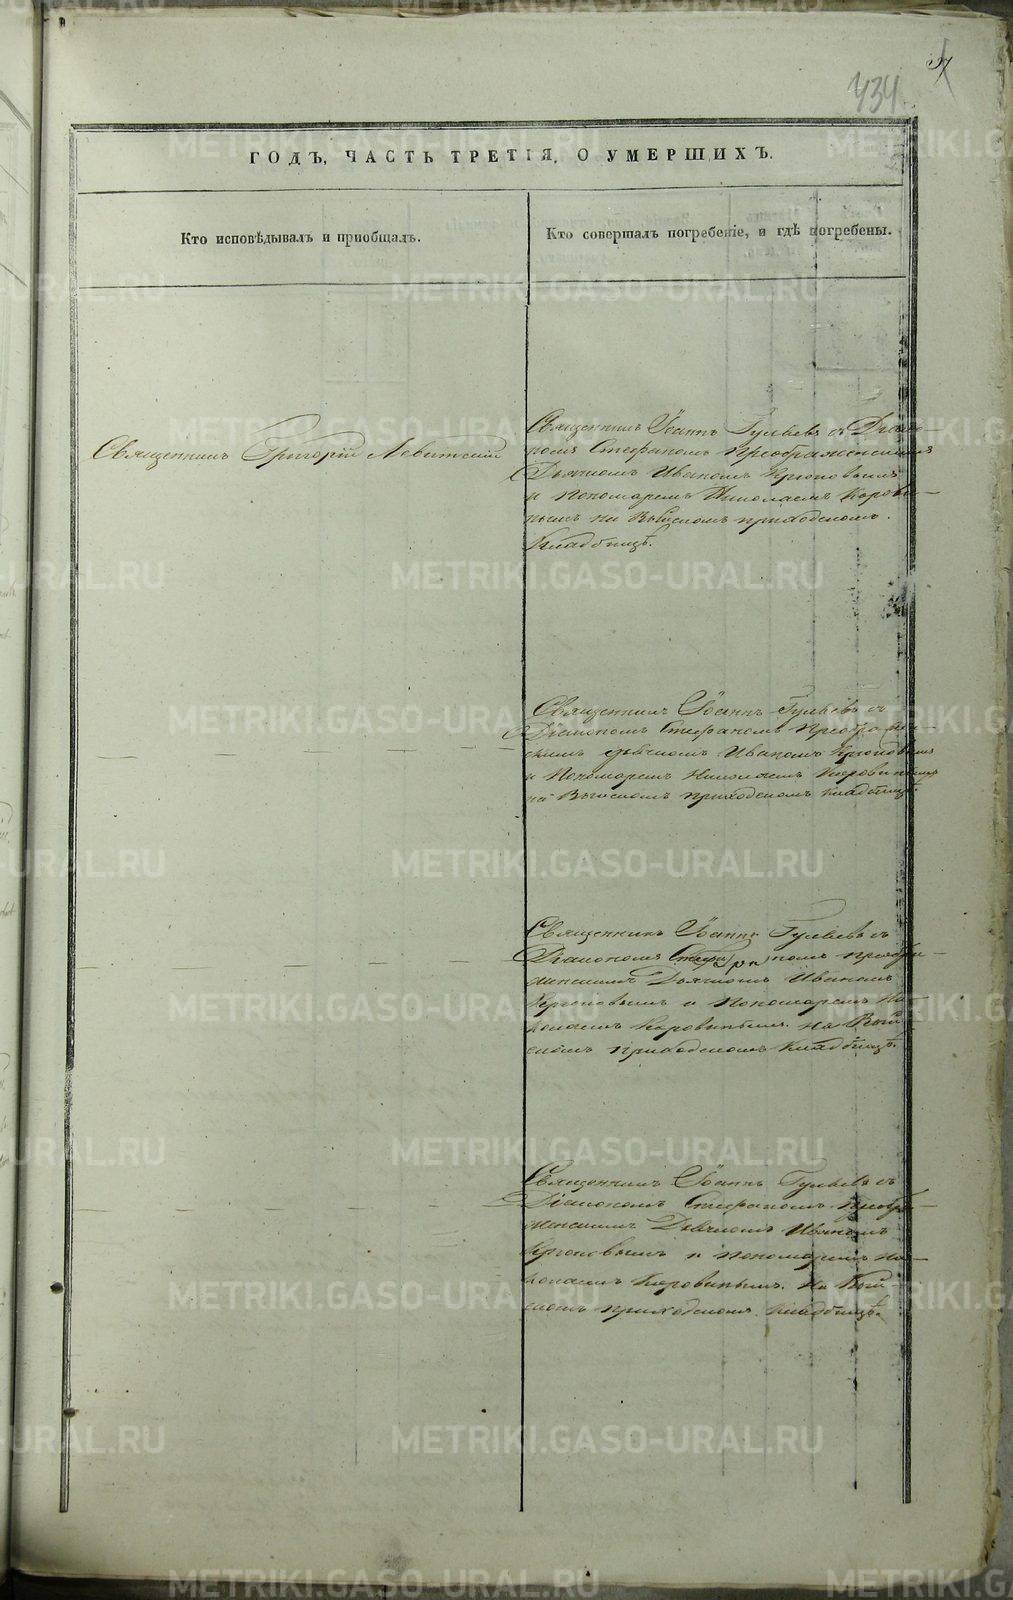 434
ГОДЪ, ЧАСТЬ ТРЕТІЯ, О УМЕРШИХЪ.
Кто исповѣдывалъ и пріобщалъ.
Кто совершалъ погребеніе, и гдѣ погребены.
Священникъ Григорій Левитскій
Священникъ Іоаннъ Гуляевъ съ Діако-
номъ Стефаномъ Преображенскимъ
Дьячкомъ Иваномъ Крюковымъ
и Пономаремъ Николаемъ Корови-
нымъ на Выйскомъ приходскомъ
Кладбищѣ.
Священникъ Іоаннъ Гуляевъ съ
Діакономъ Стефаномъ Преображен-
скимъ дьячкомъ Иваномъ Крюковымъ
и Пономаремъ Николаемъ Коровинымъ
на Выйскомъ приходскомъ кладбищѣ.
Священникъ Іоаннъ Гуляевъ съ
Діакономъ Стефаномъ Преобра-
женскимъ Дьячкомъ Иваномъ
Крюковымъ и Пономаремъ Ни-
колаемъ Коровинымъ на Вый-
скомъ приходскомъ кладбищѣ.
Священникъ Іоаннъ Гуляевъ съ
Діакономъ Стефаномъ Преобра-
женскимъ Дьячкомъ Иваномъ
Крюковымъ и Пономаремъ Ни-
колаемъ Коровинымъ на Вый-
скомъ приходскомъ кладбищѣ.
METRIKI.GASO-URAL.RU